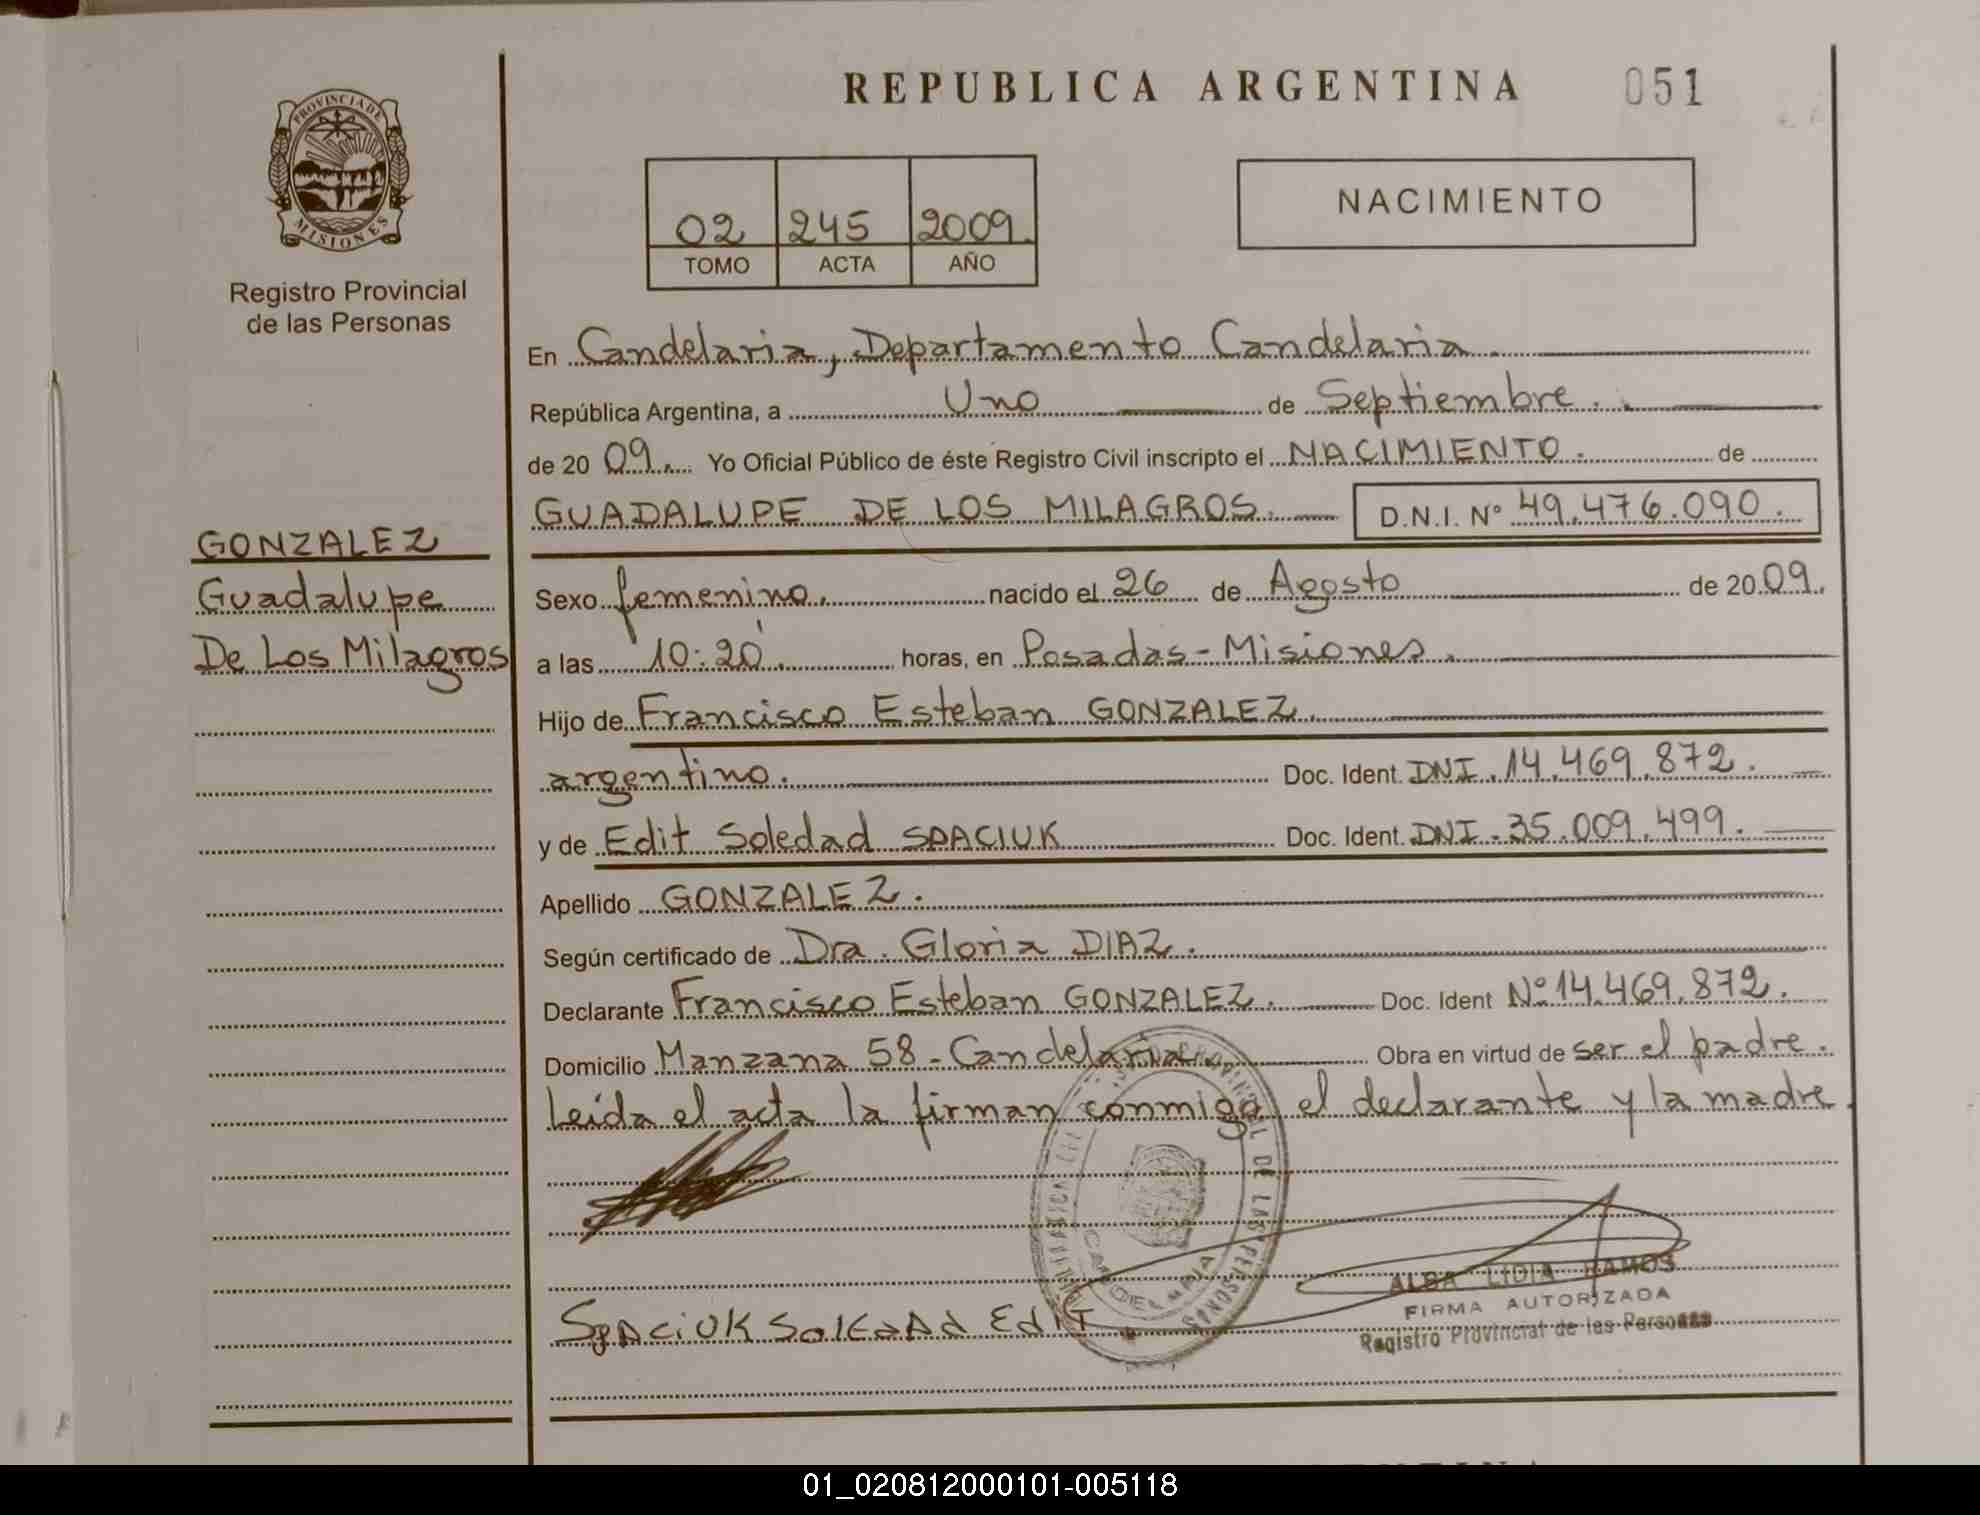 REPUBLICA ARGENTINA 051
PROVINCIA DE
MISIONES
Registro Provincial
de las Personas
02 245 2009.
TOMO ACTA AÑO
NACIMIENTO
En Candelaria, Departamento Candelaria.
República Argentina, a Uno de Septiembre.
de 20 09. Yo Oficial Público de éste Registro Civil inscripto el NACIMIENTO. de
GUADALUPE DE LOS MILAGROS. D.N.I. Nº 49.476.090.
GONZALEZ
Guadalupe
De Los Milagros
Sexo femenino. nacido el 26 de Agosto de 20 09.
a las 10:20'. horas, en Posadas - Misiones.
Hijo de Francisco Esteban GONZALEZ.
argentino. Doc. Ident. DNI. 14.469.872.
y de Edit Soledad SPACIUK Doc. Ident. DNI. 35.009.499.
Apellido GONZALEZ.
Según certificado de Dra. Gloria DIAZ.
Declarante Francisco Esteban GONZALEZ. Doc. Ident Nº 14.469.872.
Domicilio Manzana 58 - Candelaria. Obra en virtud de ser el padre.
Leída el acta la firman conmigo el declarante y la madre.
DE LAS PERSONAS
CANDELARIA
SpACiUK SolEdAd Edit
ALBA LIDIA RAMOS
FIRMA AUTORIZADA
Registro Provincial de las Personas
01_020812000101-005118